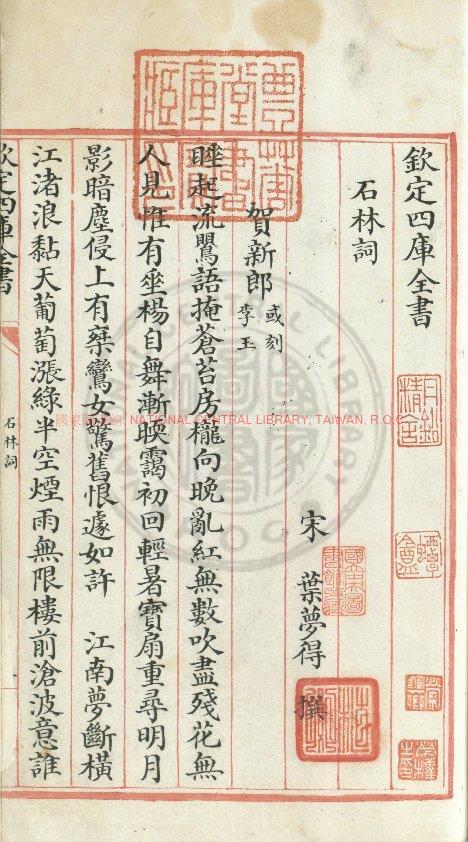 欽定四庫全書
石林詞
宋 葉夢得 撰
賀新郎 或刻李玉
睡起流鸎語掩蒼苔房櫳向晚亂紅無數吹盡殘花無
人見惟有垂楊自舞漸暖靄初回輕暑寶扇重尋明月
影暗塵侵上有乗鸞女驚舊恨遽如許 江南夢斷橫
江渚浪黏天葡萄漲綠半空煙雨無限樓前滄波意誰
欽定四庫全書
石林詞
NATIONAL CENTRAL LIBRARY, TAIWAN, R.O.C